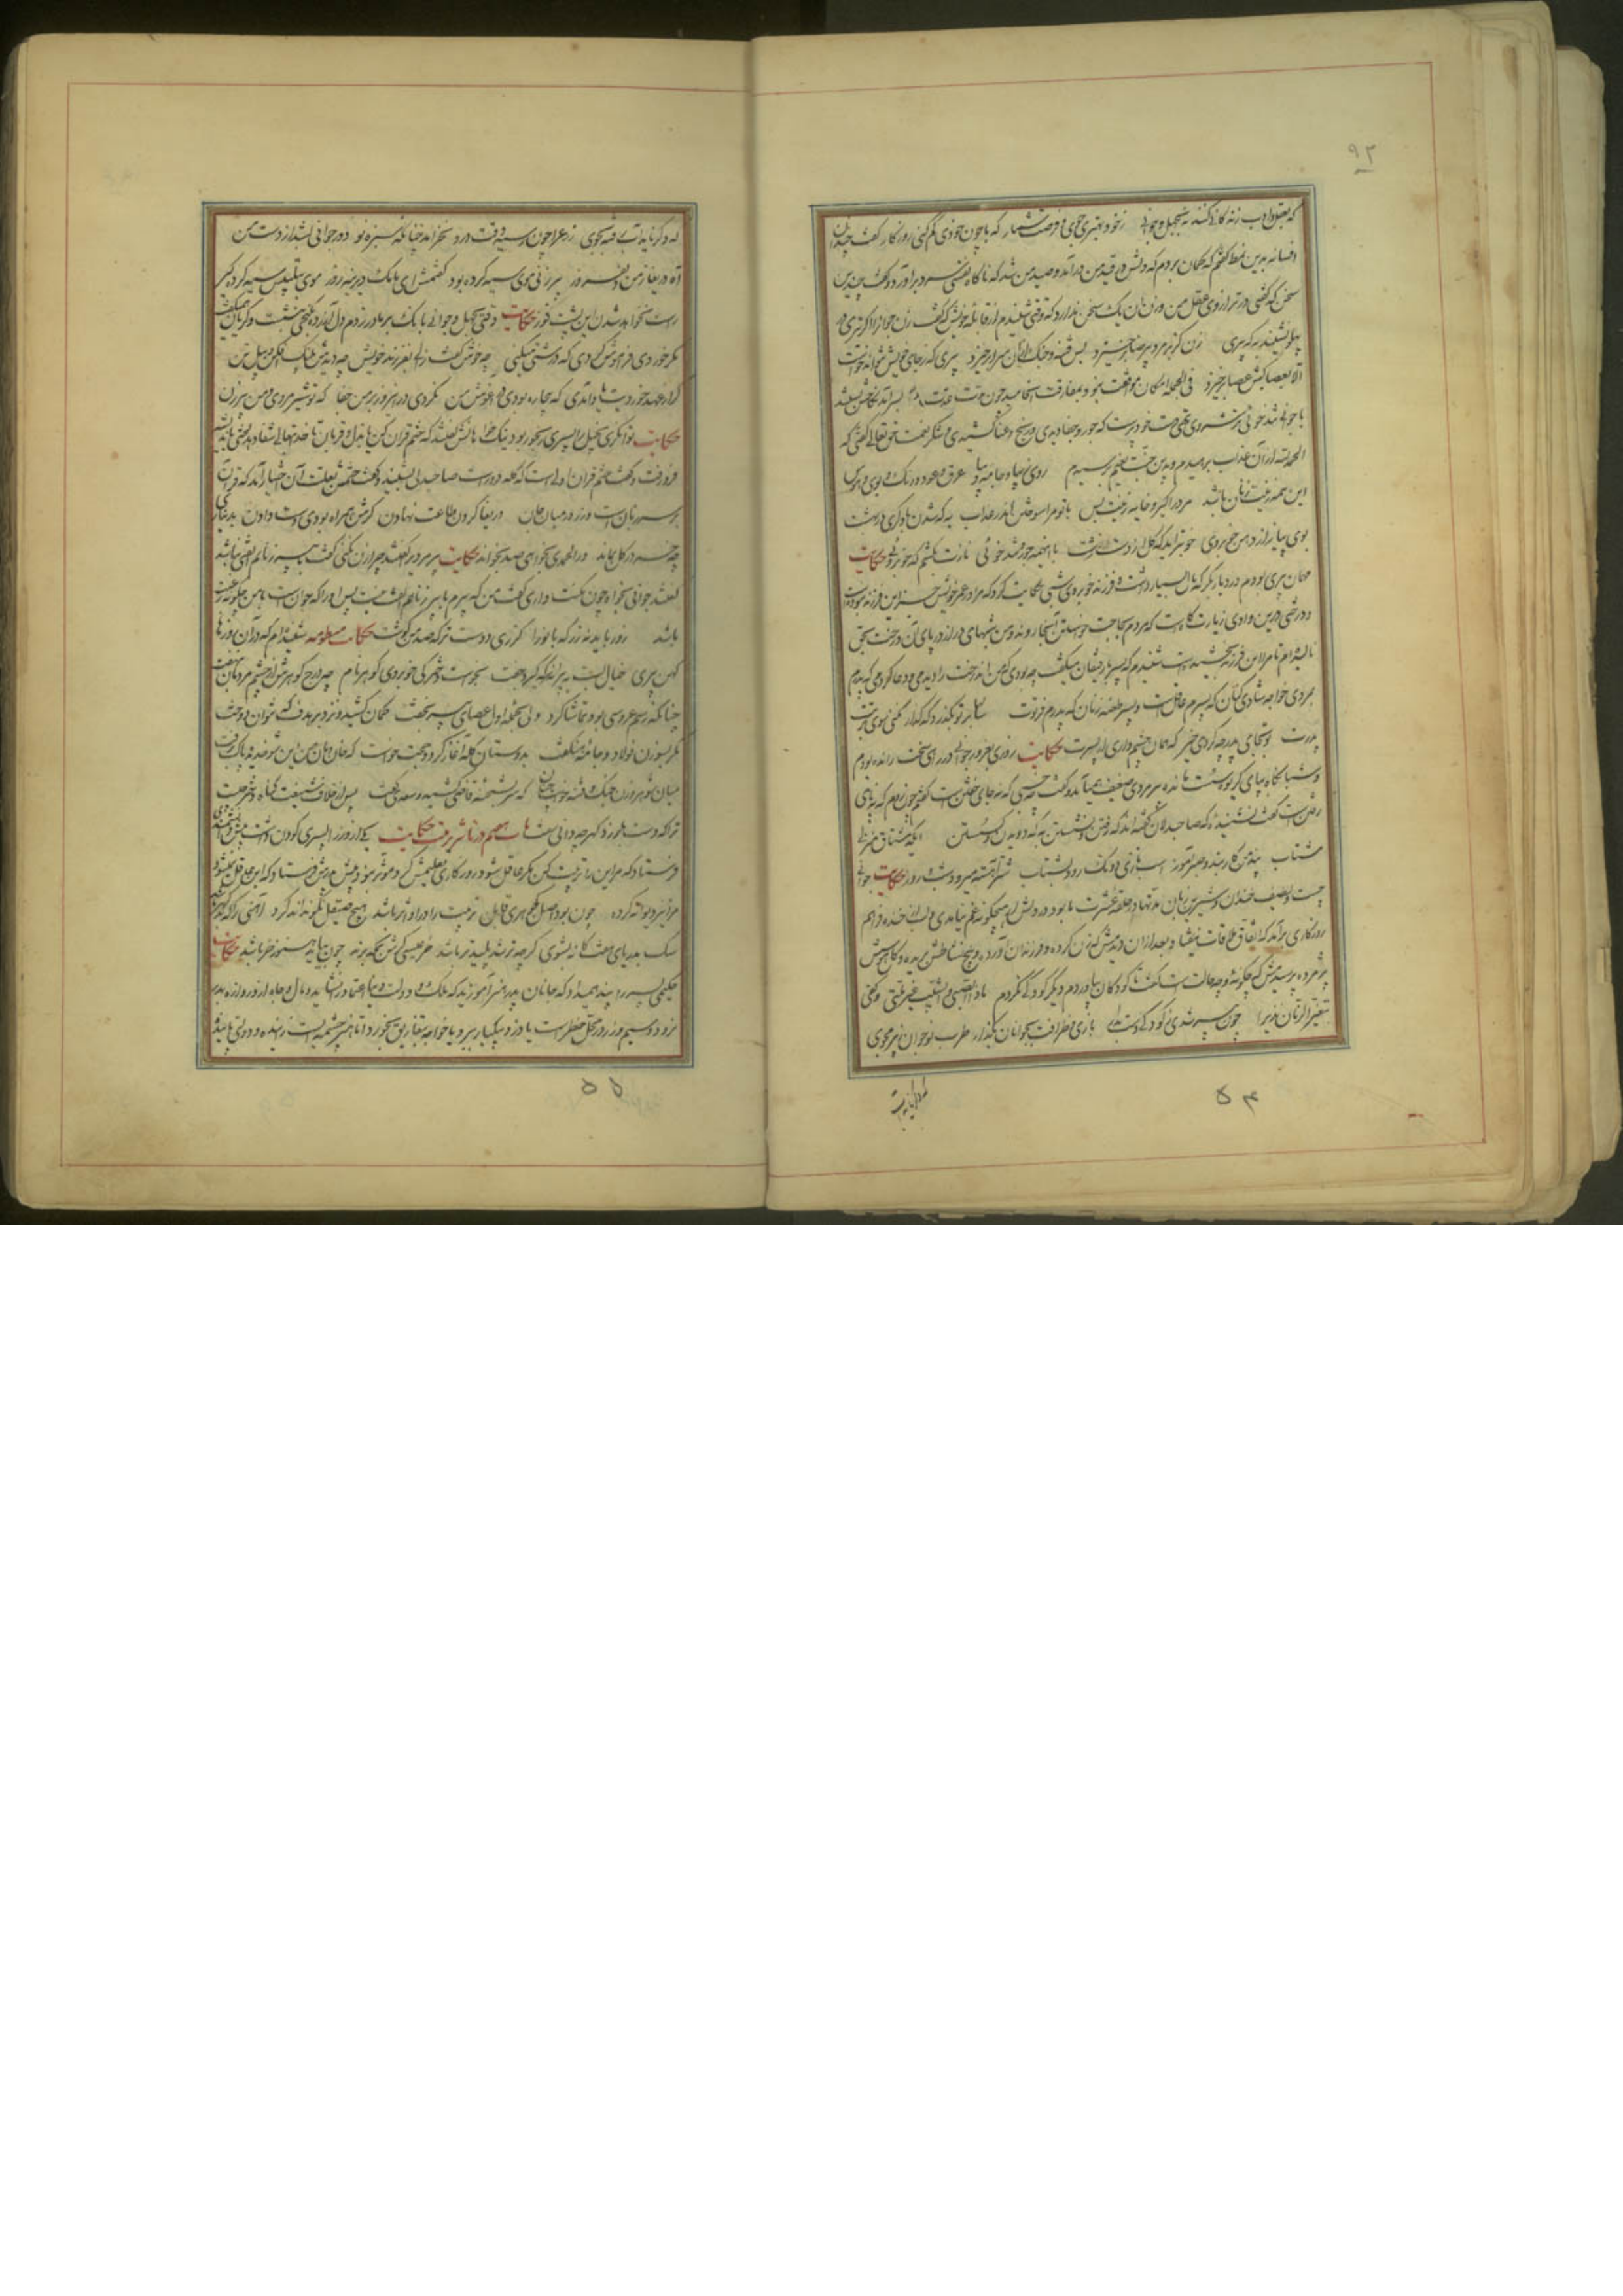 ۹۲
که بعقل و ادب زندگانی کنند نه بجهل و جوانی ز خود بهتری جوی و فرصت شمار که با چون خودی گم کنی روزگار گفت چندان
افسانه برین نمط گفتم که گمان بردم که دلش در قید من درآمد و صید من شد که ناگاه نفسی سرد برآورد و گفت چندین
سخن که گفتی در ترازوی عقل من وزن آن یک سخن ندارد که وقتی شنیدم از قابله خویش که گفت زن جوانرا اگر تیری در
پهلو نشیند به که پیری زن کز بر مرد بی رضا برخیزد بس فتنه و جنک از آن سرا برخیزد پیری که ز جای خویش نتواند خواست
الا بعصا کیش عصا برخیزد فی الجمله امکان موافقت نبود بمفارقت انجامید چون مدت عدت بسر آمد نکاحش بستند
با جوانی تند خوی ترش روی تهی دست خود پرست که جور و جفا دیدی و رنج و عنا کشیدی و شکر نعمت حق تعالی گفتی که
الحمد لله از آن عذاب برهیدم و بدین جنت نعیم برسیدم روی زیبا و جامه دیبا عرق و عود و رنک و بوی و هوس
این همه زینت زنان باشد مرد را کیر و خایه زینت بس با تو مرا سوختن اندر عذاب به که شدن با دگری در بهشت
بوی پیاز از دهن خوبروی خوبتر آید که گل از دست زشت با اینهمه جور و تند خوئی نازت بکشم که خوبروئی حکایت
مهمان پیری بودم در دیار بکر که مال بسیار داشت و فرزند خوبروی شبی حکایت کرد که مرا در عمر خویش جز این فرزند نبوده است
درختی درین وادی زیارت گاه است که مردم بحاجت خواستن آنجا روند و من شبهای دراز در پای آن درخت بحق
نالیده ام تا مرا این فرزند بخشیده است شنیدم که پسر با رفیقان میگفت چه بودی که من آن درخت را دیدمی و دعا کردمی که پدرم
بمردی خواجه شادی کنان که پسرم عاقل است و پسر طعنه زنان که پدرم فرتوت سالها بر تو بگذرد که گذار نکنی سوی تربت
پدرت تو بجای پدر چه کردی خیر که همان چشم داری از پسرت حکایت روزی بغرور جوانی در رهی سخت رانده بودم
و شبانگاه بپای گریوه سست مانده پیر مردی ضعیف می آمد و گفت چه خسبی که نه جای خفتن است گفتم چون روم که نه پای
رفتن است گفت نشنیده که صاحبدلان گفته اند که رفتن و نشستن به که دویدن و گسستن ایکه مشتاق منزلی
مشتاب پند من کار بند و صبر آموز اسب تازی دو تک رود بشتاب شتر آهسته میرود شب و روز حکایت جوانی
چست و لطیف خندان و شیرین زبان در حلقه عشرت ما بود در دلش از هیچگونه غم نیامدی و لب از خنده فراهم
روزگاری برآمد که اتفاق ملاقات نیفتاد بعد از آن دیدمش که زن کرده و فرزندان آورده و بیخ نشاطش بریده و گل هوس
پژمرده پرسیدمش که چگونه و چه حالت است گفت تا کودکان بیاوردم دیگر کودکی نکردم ماذا الصبی و الشیب غیر لمتی و کفی
بتغیر الزمان نذیرا چون پیر شدی ز کودکی دست بدار بازی و ظرافت بجوانان بگذار طرب نوجوان ز پیر مجوی
۵۴
که دگر ناید آب رفته بجوی زرع را چون رسید وقت درو نخرامد چنانکه سبزه نو دور جوانی بشد از دست من
آه دریغا زمن دلفروز پیر زنی موی سیه کرده بود گفتمش ای مامک دیرینه روز موی بتلبیس سیه کرده گیر
راست نخواهد شدن این پشت کوز حکایت وقتی بجهل جوانی بانک بر مادر زدم دل آزرده بکنجی نشست و گریان همیگفت
مگر خوردی فراموش کردی که درشتی میکنی چه خوش گفت زالی بفرزند خویش چو دیدش پلنک افکن و پیل تن
گر از عهد خوردیت یاد آمدی که بیچاره بودی در آغوش من نکردی درین روز بر من جفا که تو شیر مردی و من پیر زن
حکایت توانگری بخیل را پسری رنجور بود نیک خواهانش گفتند که ختم قرآن کن یا بذل قربان تا خدایتعالی شفا دهد لختی باندیشه
فرو رفت و گفت ختم قرآن اولی است که گله دور است صاحبدلی بشنید و گفت ختمش بعلت آن اختیار آمد که قرآن
بر سر زبان است و زر در میان جان دریغا گردن طاعت نهادن گرش همراه بودی دست دادن بدیناری
چو خر در گل بماند ور الحمدی بخواهی صد بخواند حکایت پیر مردیرا گفتند چرا زن نکنی گفت با پیر زنانم الفتی نباشد
گفتند جوانی بخواه چون مکنت داری گفت من که پیرم با پیر زنانم الفت نیست پس او را که جوان است با من چگونه رغبت
باشد زور باید نه زر که بانو را گزری دوست تر که ده من گوشت حکایت منظومه شنیده ام که درین روزها
کهن پیری خیال بست به پیرانه سر که گیرد جفت بخواست دخترکی خوبروی گوهر نام چو درج گوهرش از چشم مردمان بنهفت
چنانکه رسم عروسی بود تماشا کرد ولی بحمله اول عصای پیر بخفت کمان کشید و نزد بر هدف که نتوان دوخت
مگر بسوزن فولاد جامه هنگفت بدوستان گله آغاز کرد و حجت خواست که خان و مان من این شوخ دیده پاک برفت
میان شوهر و زن جنک و فتنه خواست چنان که سر بشحنه و قاضی کشید و سعدی گفت پس از خلافت و شنعت گناه دختر چیست
ترا که دست بلرزد گهر چه دانی سفت باب هفتم در تاثیر تربیت حکایت یکی از وزرا پسری کودن داشت پیش دانشمندی
فرستاد که مر این را تربیت کن مگر عاقل شود روزگاری تعلیمش کرد موثر نبود پیش پدرش فرستاد که این عاقل نمیشود
مرا نیز دیوانه کرده چون بود اصل گوهری قابل تربیت را در او اثر باشد هیچ صیقل نکو نداند کرد آهنی را که بد گهر
سک بدریای هفتگانه بشوی که چو تر شد پلید تر باشد خر عیسی گرش بمکه برند چون بیاید هنوز خر باشد حکایت
حکیمی پسر را پند همیداد که جانان پدر هنر آموزید که ملک و دولت دنیا اعتماد را نشاید و مال و جاه از دروازه بدر
نرود و سیم و زر در محل خطر است یا دزد بیکبار ببرد یا خواجه بتفاریق بخورد اما هنر چشمه ایست زاینده و دولتی پاینده
۵۵